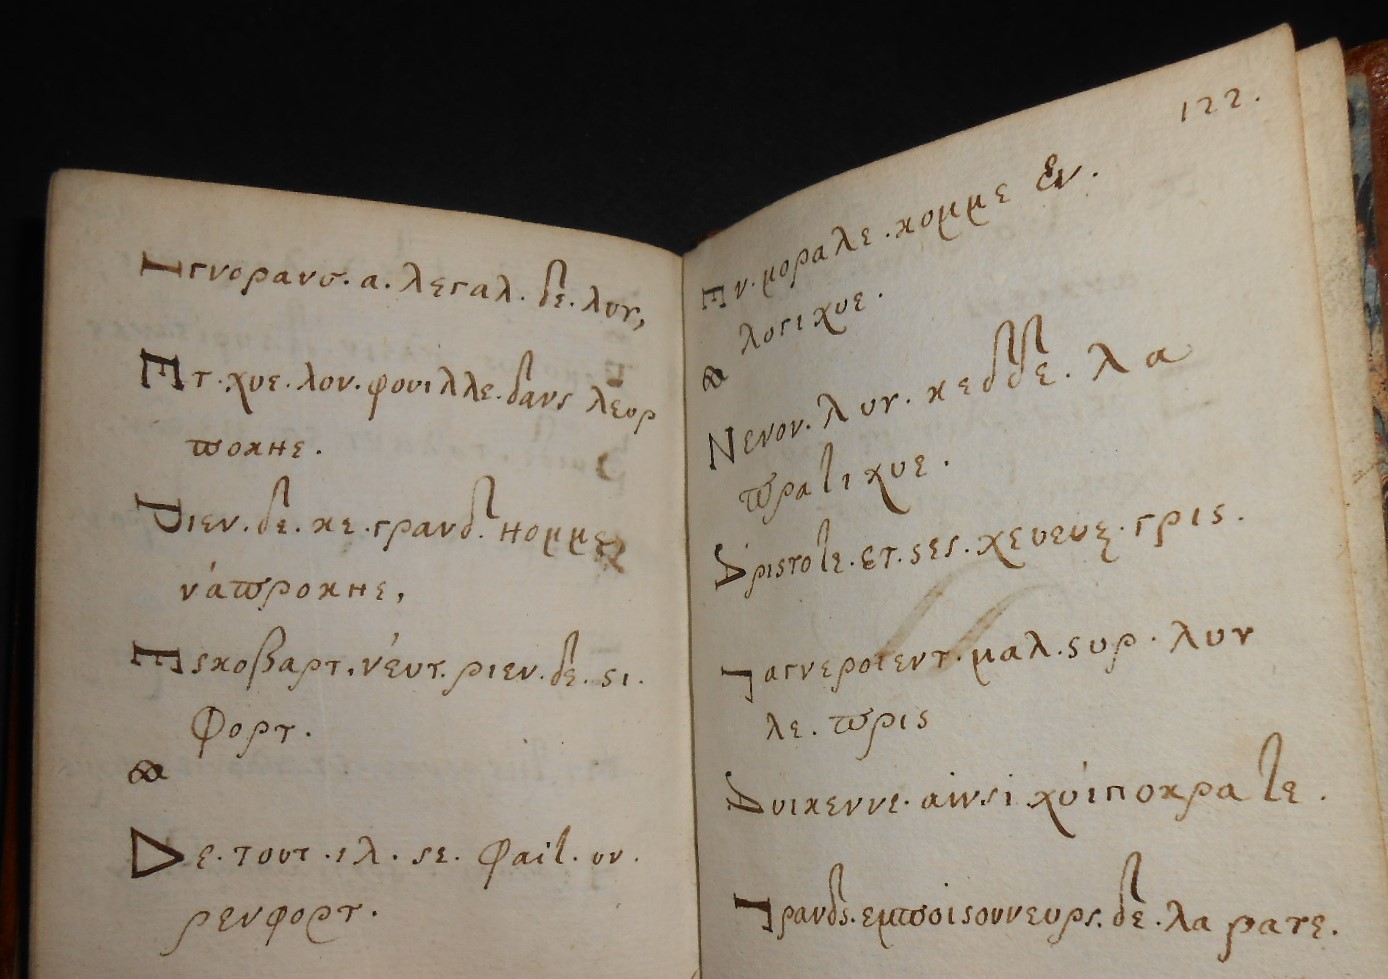 Ιγνορανσ. α. λεγαλ. δε. λυγ,
Ετ. χυε. λον. φουιλλε. δανς λευρ
ϖοκηε.
Ριεν. δε. κε. γρανδ. ηομμε
ν'αϖροκηε,
Εςκοβαρτ, ν'ευτ. ριεν. δε. ςι.
Φορτ.
&
Δε. τουτ. ιλ. ςε. φαιτ. υν.
ρενφορτ.
122.
Εν. μοραλε. κομμε εν.
λογιχυε.
&
Νενον. λυγ. κεδδε. λα
ϖρατιχυε.
Αριςτοτε. ετ. ςες. χευευξ. γρις.
Γαγνεροιεντ. μαλ. ςυρ. λυγ
λε. ϖρις
Αυικεννε. αινσι χυ'ιποκρατε.
Γρανδς. εμϖοιςοννευρς. δε. λα ρατε.